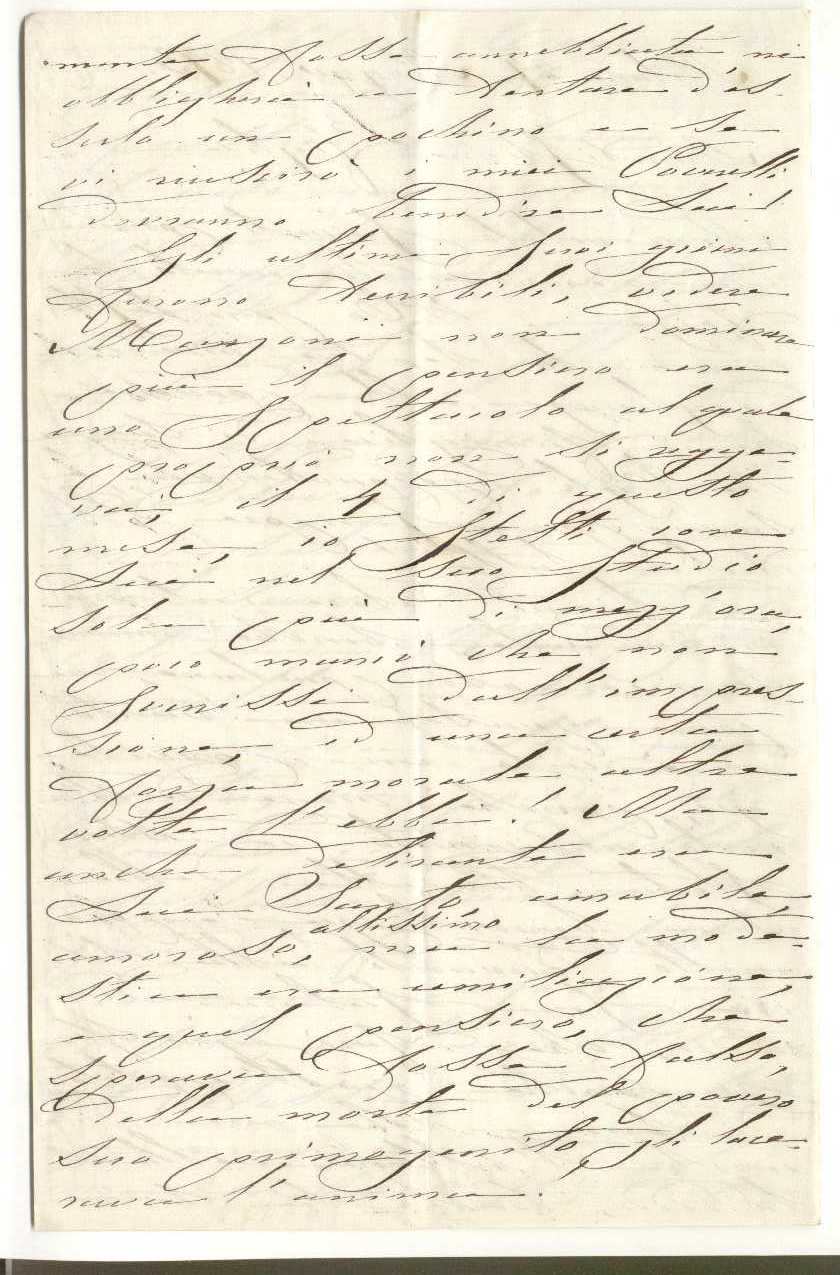 mente fosse annebbiata mi
obbligherei a tentare d'es-
serlo un pochino e se
vi riuscirò i miei Poverelli
dovranno benedire Lei!
Gli ultimi suoi giorni
furono terribili, vedere
Manzoni non dominare
più il pensiero era
uno spettacolo al quale
proprio non si regge-
va, il 4 di questo
mese, io stetti con
Lui nel suo studio
sola più di mezz'ora,
poco mancò che non
svenissi dall'impres-
sione, ed una certa
forza morale altre
volte l'ebbi! Ma
anche delirante era
Lui Santo, amabile,
amoroso, altissimo ma la mode-
stia era umiliazione,
e quel pensiero, che
sperava fosse falso,
della morte del povero
suo primogenito gli lace-
rava l'anima.